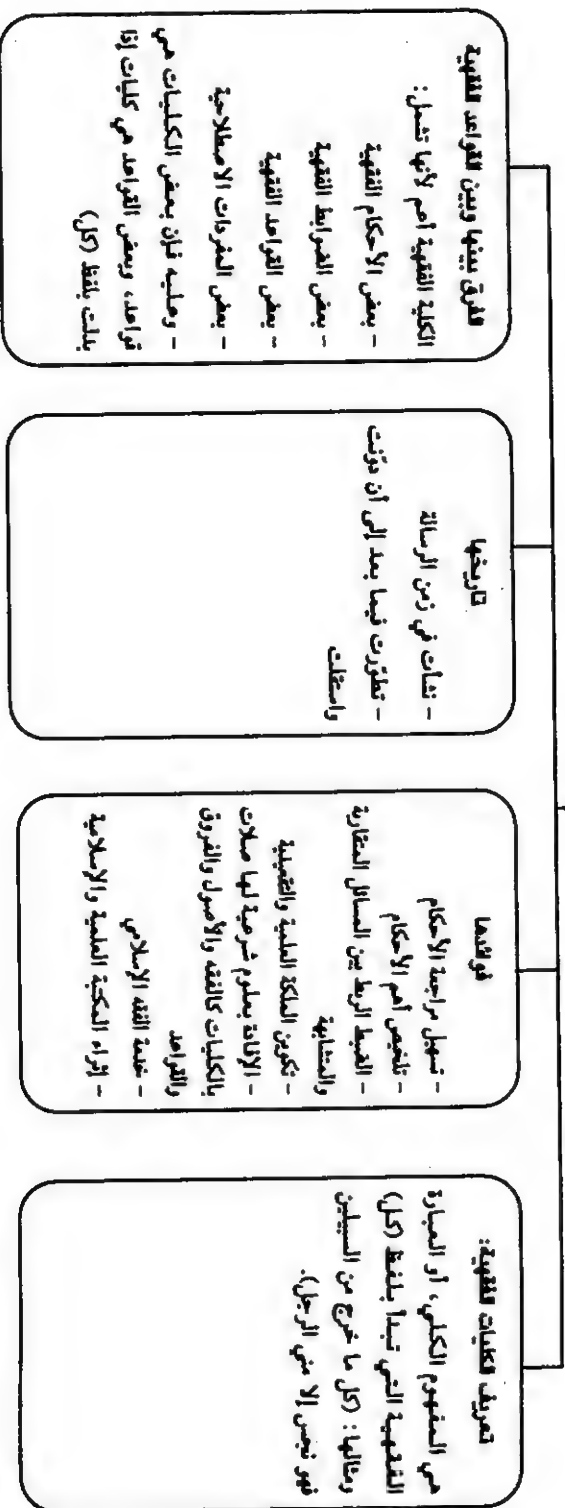 تعريف الكليات الفقهية:
هي المفهوم الكلي، أو العبارة
الفقهية التي تبدأ بلفظ (كل)
ومثالها: (كل ما خرج من السبيلين
فهو نجس إلا مني الرجل).
فوائدها
- تسهيل مراجعة الأحكام
- تلخيص أهم الأحكام
- الضبط الربط بين المسائل المتقاربة
والمتشابهة
- تكوين الملكة العلمية والتقعيدية
- الإفادة بعلوم شرعية لها صلات
بالكليات كالفقه والأصول والفروق
والقواعد
- خدمة الفقه الإسلامي
- إثراء المكتبة العلمية والإسلامية
تاريخها
- نشأت في زمن الرسالة
- تطوّرت فيما بعد إلى أن دوّنت
واستقلت
الفرق بينها وبين القواعد الفقهية
الكلية الفقهية أعم لأنها تشمل:
- بعض الأحكام الفقهية
- بعض الضوابط الفقهية
- بعض القواعد الفقهية
- بعض المفردات الاصطلاحية
- وعليه فإن بعض الكليات هي
قواعد، وبعض القواعد هي كليات إذا
بدلت بلفظ (كل)